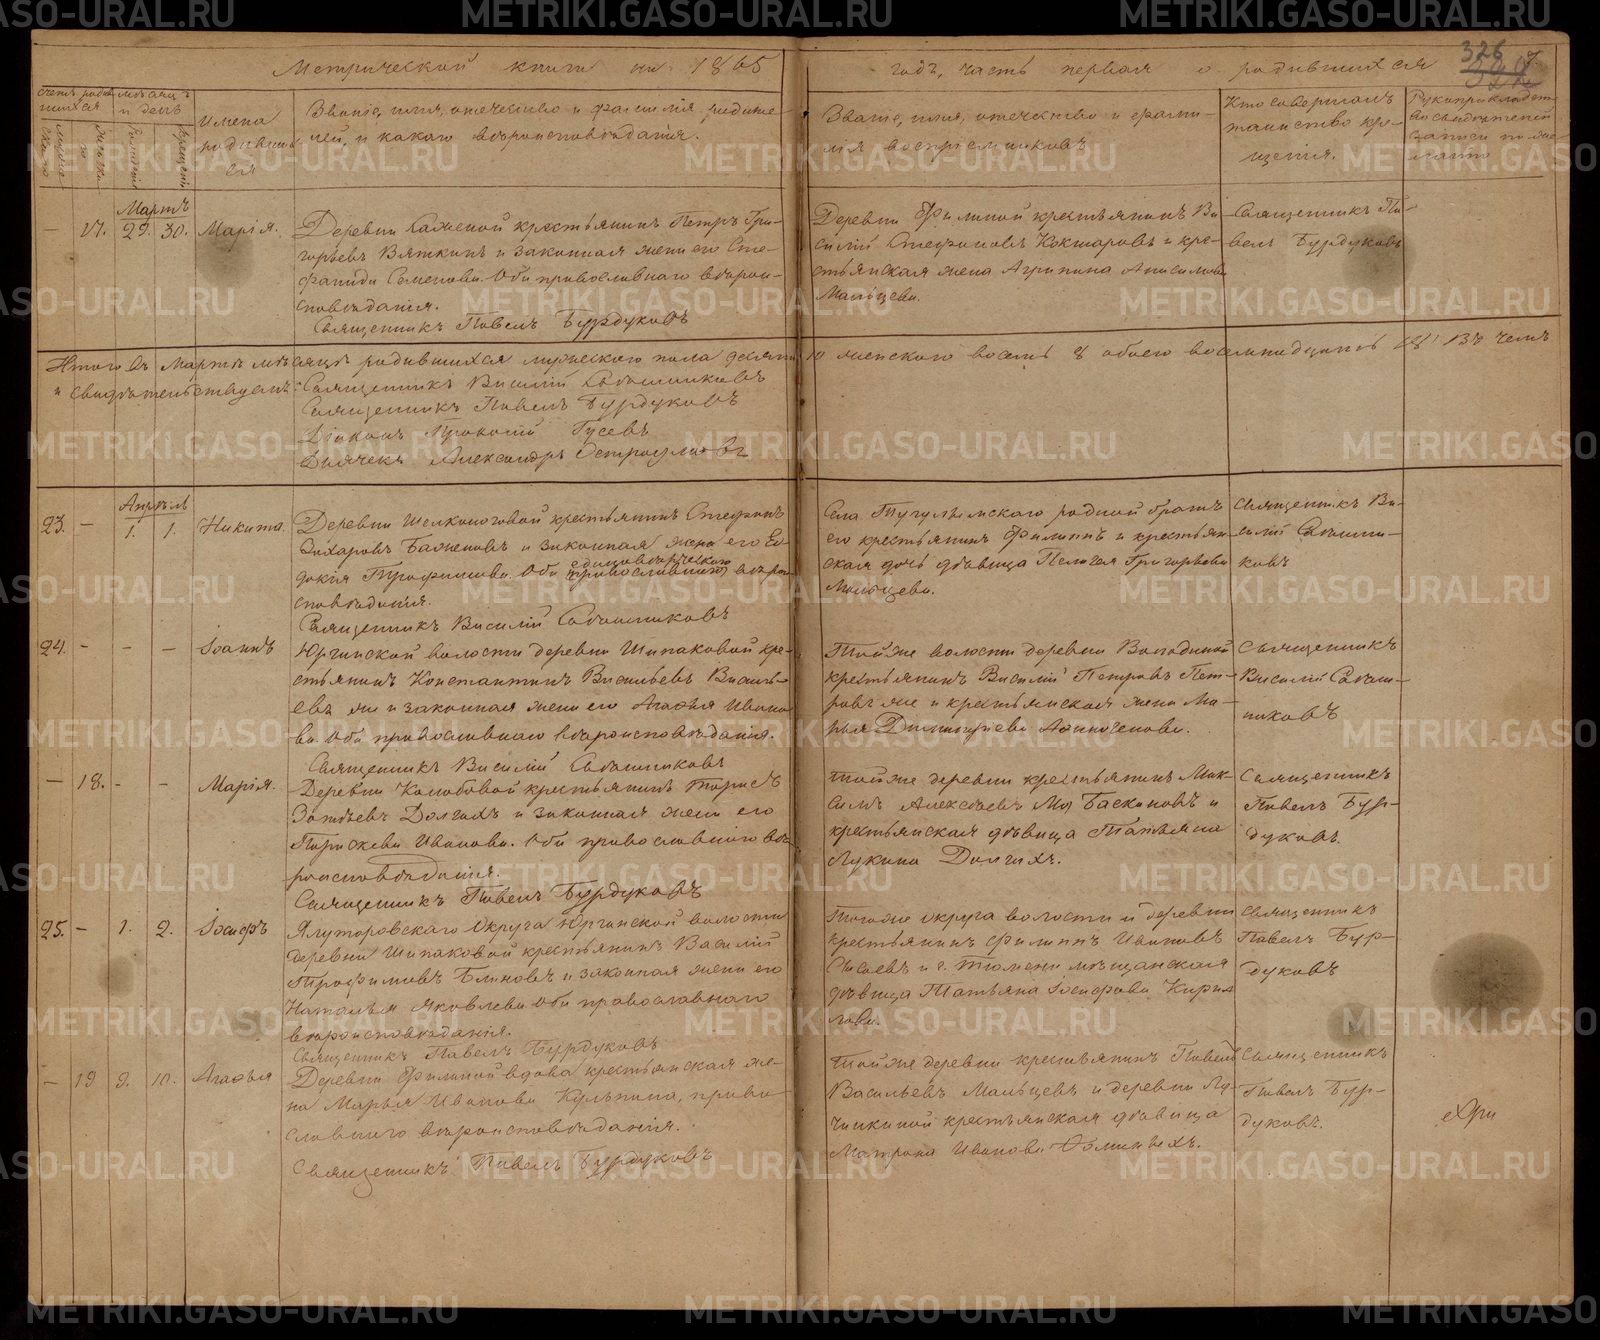 Метрической книги на 1865
годъ, часть первая о родившихся
326
Имена родившихся
Званіе, имя, отечество и фамилія родителей, и какого вѣроисповѣданія.
Званіе, имя, отечество и фамилія воспріемниковъ
Кто совершалъ таинство крещенія.
Мартъ
17. 29. 30. Марія.
Деревни крестьянинъ Петръ Гри-
горьевъ Вяткинъ и законная жена его Сте-
фанида Семенова. Оба православнаго вѣрои-
сповѣданія.
Священникъ Павелъ Бурдуковъ
Деревни Филиной крестьянинъ Ва-
силій Стефановъ Кокшаровъ и кре-
стьянская жена Агрипина Анисимова
Мальцева.
Священникъ Па-
велъ Бурдуковъ
Итого въ Мартѣ мѣсяцѣ родившихся мужескаго пола десять 10 женскаго восемь 8 обоего восемнадцать 18. Въ чемъ
и свидѣтельствуемъ: Священникъ Василій Сабашниковъ
Священникъ Павелъ Бурдуковъ
Діаконъ Прокопій Гусевъ
Дьячекъ Александръ
Апрѣль
23. – 1. 1. Никита.
Деревни Шелконоговой крестьянинъ Стефанъ
Захаровъ Баженовъ и законная жена его Ев-
докія Трофимова. Оба единовѣрческаго православнаго вѣрои-
сповѣданія.
Священникъ Василій Сабашниковъ
Села Тугулымскаго родной братъ
его крестьянинъ Филиппъ и крестьян-
ская дочь дѣвица Пелагея Григорьева
Мальцева.
Священникъ Ва-
силій Сабашни-
ковъ
24. – – – Іоаннъ
Юргинской волости деревни Шипаковой кре-
стьянинъ Константинъ Васильевъ Василь-
евъ же и законная жена его Агафья Ивано-
ва. Оба православнаго вѣроисповѣданія.
Священникъ Василій Сабашниковъ
Той же волости деревни
крестьянинъ Василій Петровъ Пет-
ровъ же и крестьянская жена Ма-
рья Димитріева
Священникъ
Василій Сабаш-
никовъ
– 18. – – Марія.
Деревни Колобовой крестьянинъ Борисъ
Долгихъ и законная жена его
Параскева Иванова. Оба православнаго вѣ-
роисповѣданія.
Священникъ Павелъ Бурдуковъ
Той же деревни крестьянинъ Мак-
симъ Алексѣевъ и
крестьянская дѣвица Татьяна
Лукина Долгихъ.
Священникъ
Павелъ Бур-
дуковъ.
25. – 1. 2. Іосифъ
Ялуторовскаго округа Юргинской волости
деревни Шипаковой крестьянинъ Василій
Трофимовъ Блиновъ и законная жена его
Наталья Яковлева Оба православнаго
вѣроисповѣданія.
Священникъ Павелъ Бурдуковъ
Того же округа волости и деревни
крестьянинъ Филиппъ Ивановъ
Сысоевъ и г. Тюмени мѣщанская
дѣвица Татьяна Іосифова Кирил-
лова.
Священникъ
Павелъ Бур-
дуковъ
– 19 9. 10. Агафья
Деревни Филиной вдова крестьянская же-
на Марья Иванова Кульпина, право-
славнаго вѣроисповѣданія.
Священникъ Павелъ Бурдуковъ
Той же деревни крестьянинъ Павелъ
Васильевъ Мальцевъ и деревни Лу-
чинкиной крестьянская дѣвица
Матрона Иванова
Священникъ
Павелъ Бур-
дуковъ.
METRIKI.GASO-URAL.RU